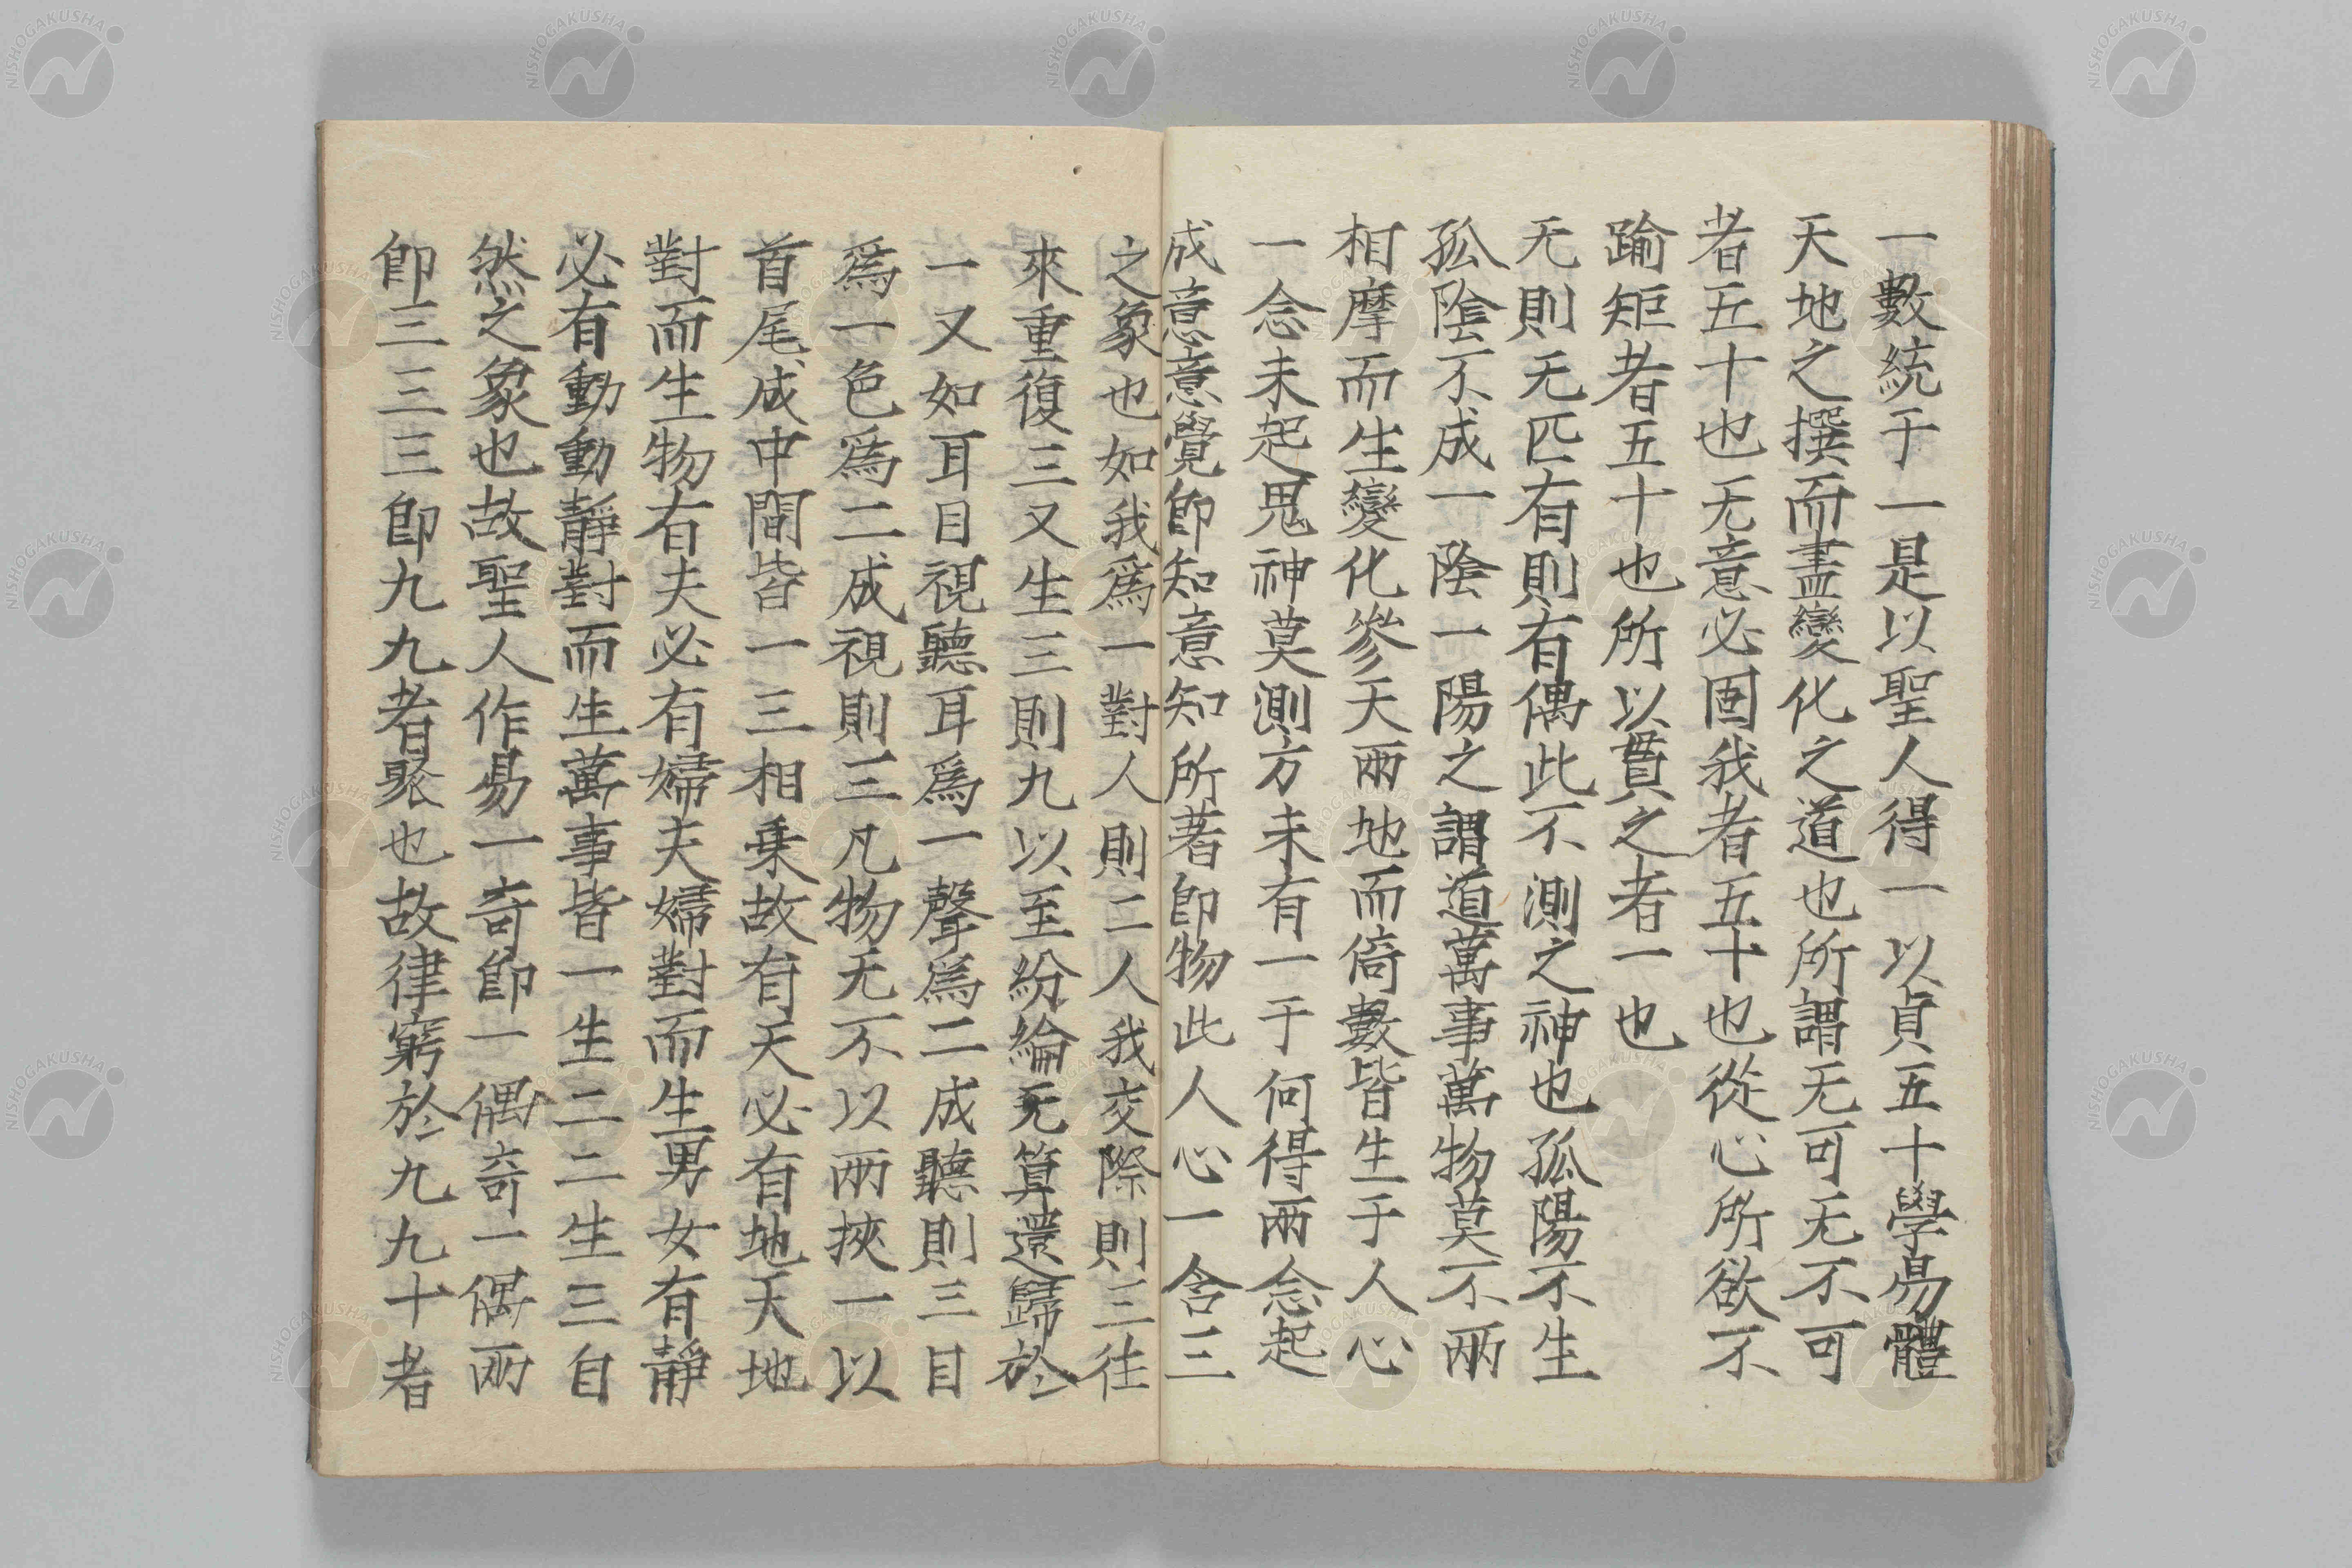 一數統于一是以聖人得一以貞五十學易體
天地之撰而盡變化之道也所謂无可无不可
者五十也无意必固我者五十也從心所欲不
踰矩者五十也所以貫之者一也
无則无匹有則有偶此不測之神也孤陽不生
孤陰不成一陰一陽之謂道萬事萬物莫不兩
相摩而生變化參天兩地而倚數皆生于人心
一念未起鬼神莫測方未有一于何得兩念起
成意意覺卽知意知所著卽物此人心一含三
之象也如我爲一對人則二人我交際則三往
來重復三又生三則九以至紛綸无算還歸於
一又如耳目視聽耳爲一聲爲二成聽則三目
爲一色爲二成視則三凡物无不以兩挾一以
首尾成中間皆一三相乗故有天必有地天地
對而生物有夫必有婦夫婦對而生男女有靜
必有動動靜對而生萬事皆一生二二生三自
然之象也故聖人作易一奇卽一偶奇一偶兩
卽三三三卽九九者聚也故律窮於九九十者
NISHOGAKUSHA